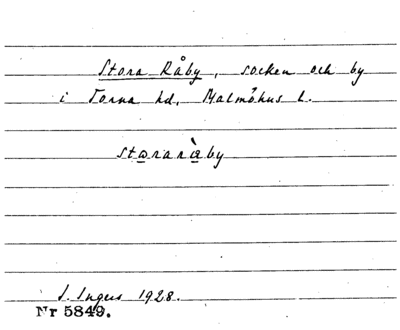 Stora Råby, socken och by
i Torna hd, Malmöhus l.
storaràby
I. Ingers 1928.
Nr 5849.